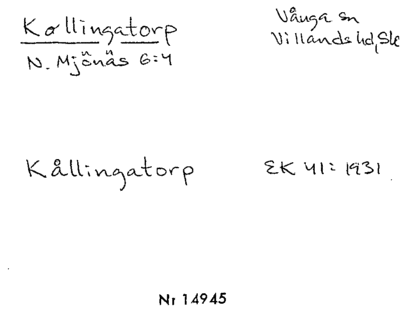 Kollingatorp
Vånga sn
Villands hd, Sk
N. Mjönäs 6:4
Kållingatorp
EK 41: 1931
Nr 14945